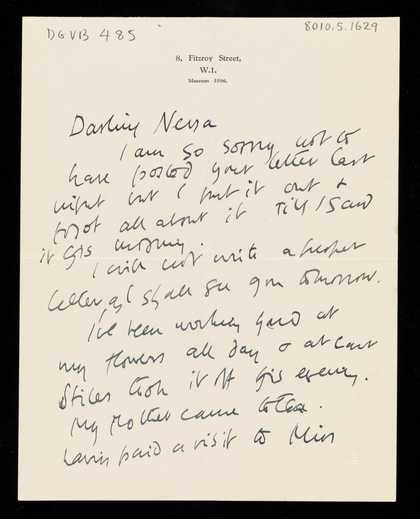 DGVB 485
8010.5.1629
8, Fitzroy Street,
W.1.
Museum 1896.
Darling Nessa
I am so sorry not to
have posted your letter last
night but I put it out &
forgot all about it till I saw
it this morning.
I will not write a proper
letter as I shall see you tomorrow.
I've been working hard at
my flowers all day & at last
Stiles took it off this evening.
My Mother came to tea.
having paid a visit to Miss